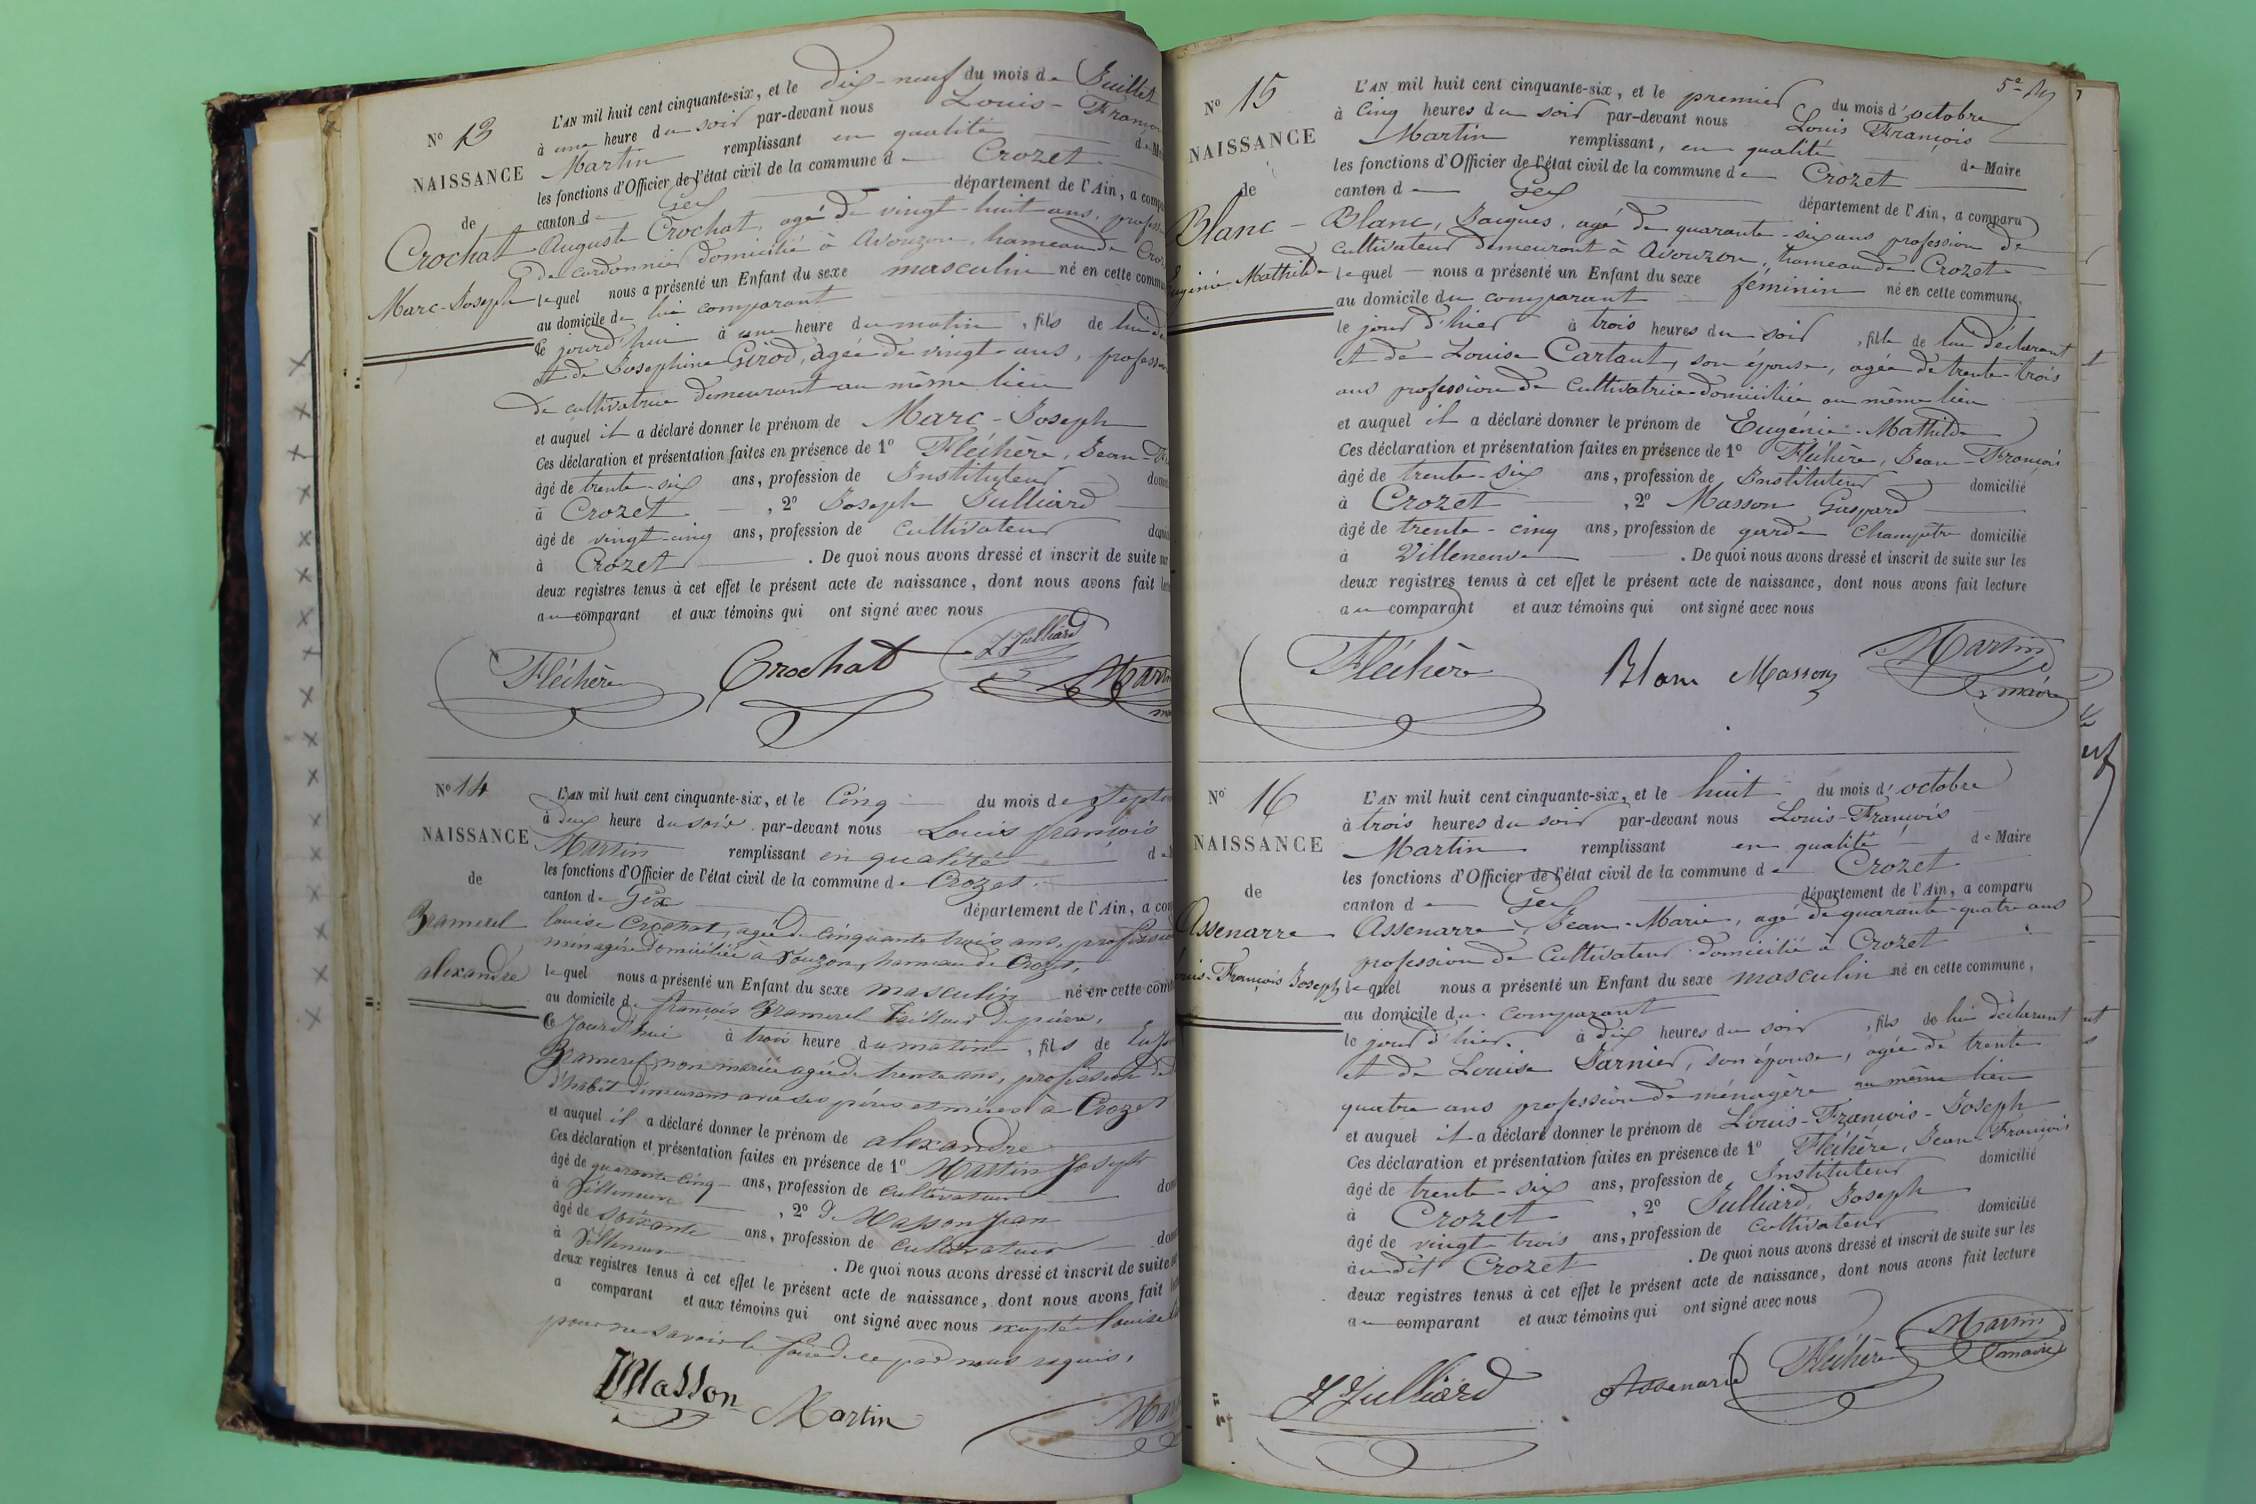 N° 13
NAISSANCE
de
Crochat
Marc-Joseph
L'AN mil huit cent cinquante-six, et le dix-neuf du mois de Juillet
à une heure du soir par-devant nous Louis-François
Martin remplissant en qualité de
les fonctions d'Officier de l'état civil de la commune de Crozet
canton de Gex département de l'Ain, a
Auguste Crochat, agé de vingt-huit ans,
de cordonnier domicilié à Avouzon, hameau de
lequel nous a présenté un Enfant du sexe masculin né en cette
au domicile de lui comparant
ce jourd'hui à une heure du matin, fils de lui
et de Josephine Girod, agée de vingt ans,
de cultivatrice demeurant au même lieu
et auquel il a déclaré donner le prénom de Marc-Joseph
Ces déclaration et présentation faites en présence de 1° Fléchère, Jean-
âgé de trente-six ans, profession de Instituteur
à Crozet, 2° Joseph Julliard
âgé de vingt-cinq ans, profession de cultivateur
à Crozet. De quoi nous avons dressé et inscrit de suite
deux registres tenus à cet effet le présent acte de naissance, dont nous avons fait
au comparant et aux témoins qui ont signé avec nous
Fléchère Crochat J Julliard
N° 14
NAISSANCE
de
Bramerel
alexandre
L'AN mil huit cent cinquante-six, et le Cinq du mois de
à deux heure du soir par-devant nous Louis françois
Martin remplissant en qualité
les fonctions d'Officier de l'état civil de la commune de Crozet
canton de Gex département de l'Ain, a
louise Crochat, agée de cinquante trois ans, profession
menagère domiciliée à Vouzon, hameau de Crozet,
lequel nous a présenté un Enfant du sexe masculin né en cette
au domicile de françois Bramerel tailleur de pierre,
Ce Jourd'hui à trois heure du matin, fils de
Bramerel, non mariée agée de trente ans, profession de
d'habit demeurant avec ses pères et mères à Crozet
et auquel il a déclaré donner le prénom de alexandre
Ces déclaration et présentation faites en présence de 1° Martin Joseph
âgé de quarante cinq ans, profession de cultivateur
à Villeneuve, 2° Masson Jean
âgé de soixante ans, profession de cultivateur
à Villeneuve. De quoi nous avons dressé et inscrit de suite
deux registres tenus à cet effet le présent acte de naissance, dont nous avons fait
a comparant et aux témoins qui ont signé avec nous excepté louise
pour ne savoir le faire de ce par nous requis,
Masson Martin
5e
N° 15
NAISSANCE
de
Blanc
Eugénie Mathilde
L'AN mil huit cent cinquante-six, et le premier du mois d'octobre
à Cinq heures du soir par-devant nous Louis François
Martin remplissant, en qualité de Maire
les fonctions d'Officier de l'état civil de la commune de Crozet
canton de Gex département de l'Ain, a comparu
Blanc, Jacques, agé de quarante-six ans profession de
cultivateur demeurant à Avouzon, hameau de Crozet
lequel nous a présenté un Enfant du sexe féminin né en cette commune,
au domicile du comparant
le jour d'hier à trois heures du soir, fille de lui déclarant
et de Louise Cartant, son épouse, agée de trente-trois
ans profession de Cultivatrice domiciliée au même lieu
et auquel il a déclaré donner le prénom de Eugénie-Mathilde
Ces déclaration et présentation faites en présence de 1° Fléchère, Jean-François
âgé de trente-six ans, profession de Instituteur domicilié
à Crozet, 2° Masson Gaspard
âgé de trente-cinq ans, profession de garde Champêtre domicilié
à Villeneuve. De quoi nous avons dressé et inscrit de suite sur les
deux registres tenus à cet effet le présent acte de naissance, dont nous avons fait lecture
au comparant et aux témoins qui ont signé avec nous
Fléchère Blanc Masson Martin
maire
N° 16
NAISSANCE
de
Assenarre
Louis-François Joseph
L'AN mil huit cent cinquante-six, et le huit du mois d'octobre
à trois heures du soir par-devant nous Louis-François
Martin remplissant en qualité de Maire
les fonctions d'Officier de l'état civil de la commune de Crozet
canton de Gex département de l'Ain, a comparu
Assenarre, Jean-Marie, agé de quarante-quatre ans
profession de Cultivateur domicilié à Crozet
lequel nous a présenté un Enfant du sexe masculin né en cette commune,
au domicile du comparant
le jour d'hier à dix heures du soir, fils de lui déclarant
et de Louise Jarnier, son épouse, agée de trente
quatre ans profession de ménagère au même lieu
et auquel il a déclaré donner le prénom de Louis-François-Joseph
Ces déclaration et présentation faites en présence de 1° Fléchère, Jean-François
âgé de trente-six ans, profession de Instituteur domicilié
à Crozet, 2° Julliard, Joseph
âgé de vingt trois ans, profession de cultivateur domicilié
audit Crozet. De quoi nous avons dressé et inscrit de suite sur les
deux registres tenus à cet effet le présent acte de naissance, dont nous avons fait lecture
au comparant et aux témoins qui ont signé avec nous
J Julliard Assenarre Fléchère Martin
maire